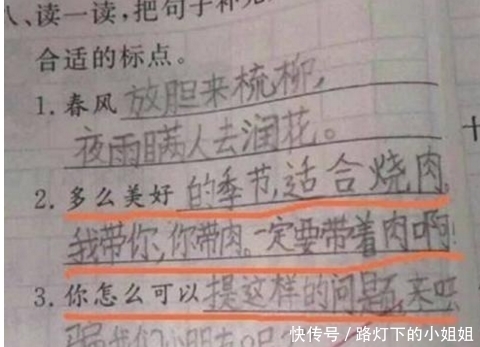 八、读一读,把句子补充
合适的标点。
1.春风放胆来梳柳,
夜雨瞒人去润花。
2.多么美好的季节,适合烧肉。
我带你,你带肉。一定要带着肉啊!
3.你怎么可以提这样的问题,来
骗我们小朋友呢
快传号/路灯下的小姐姐